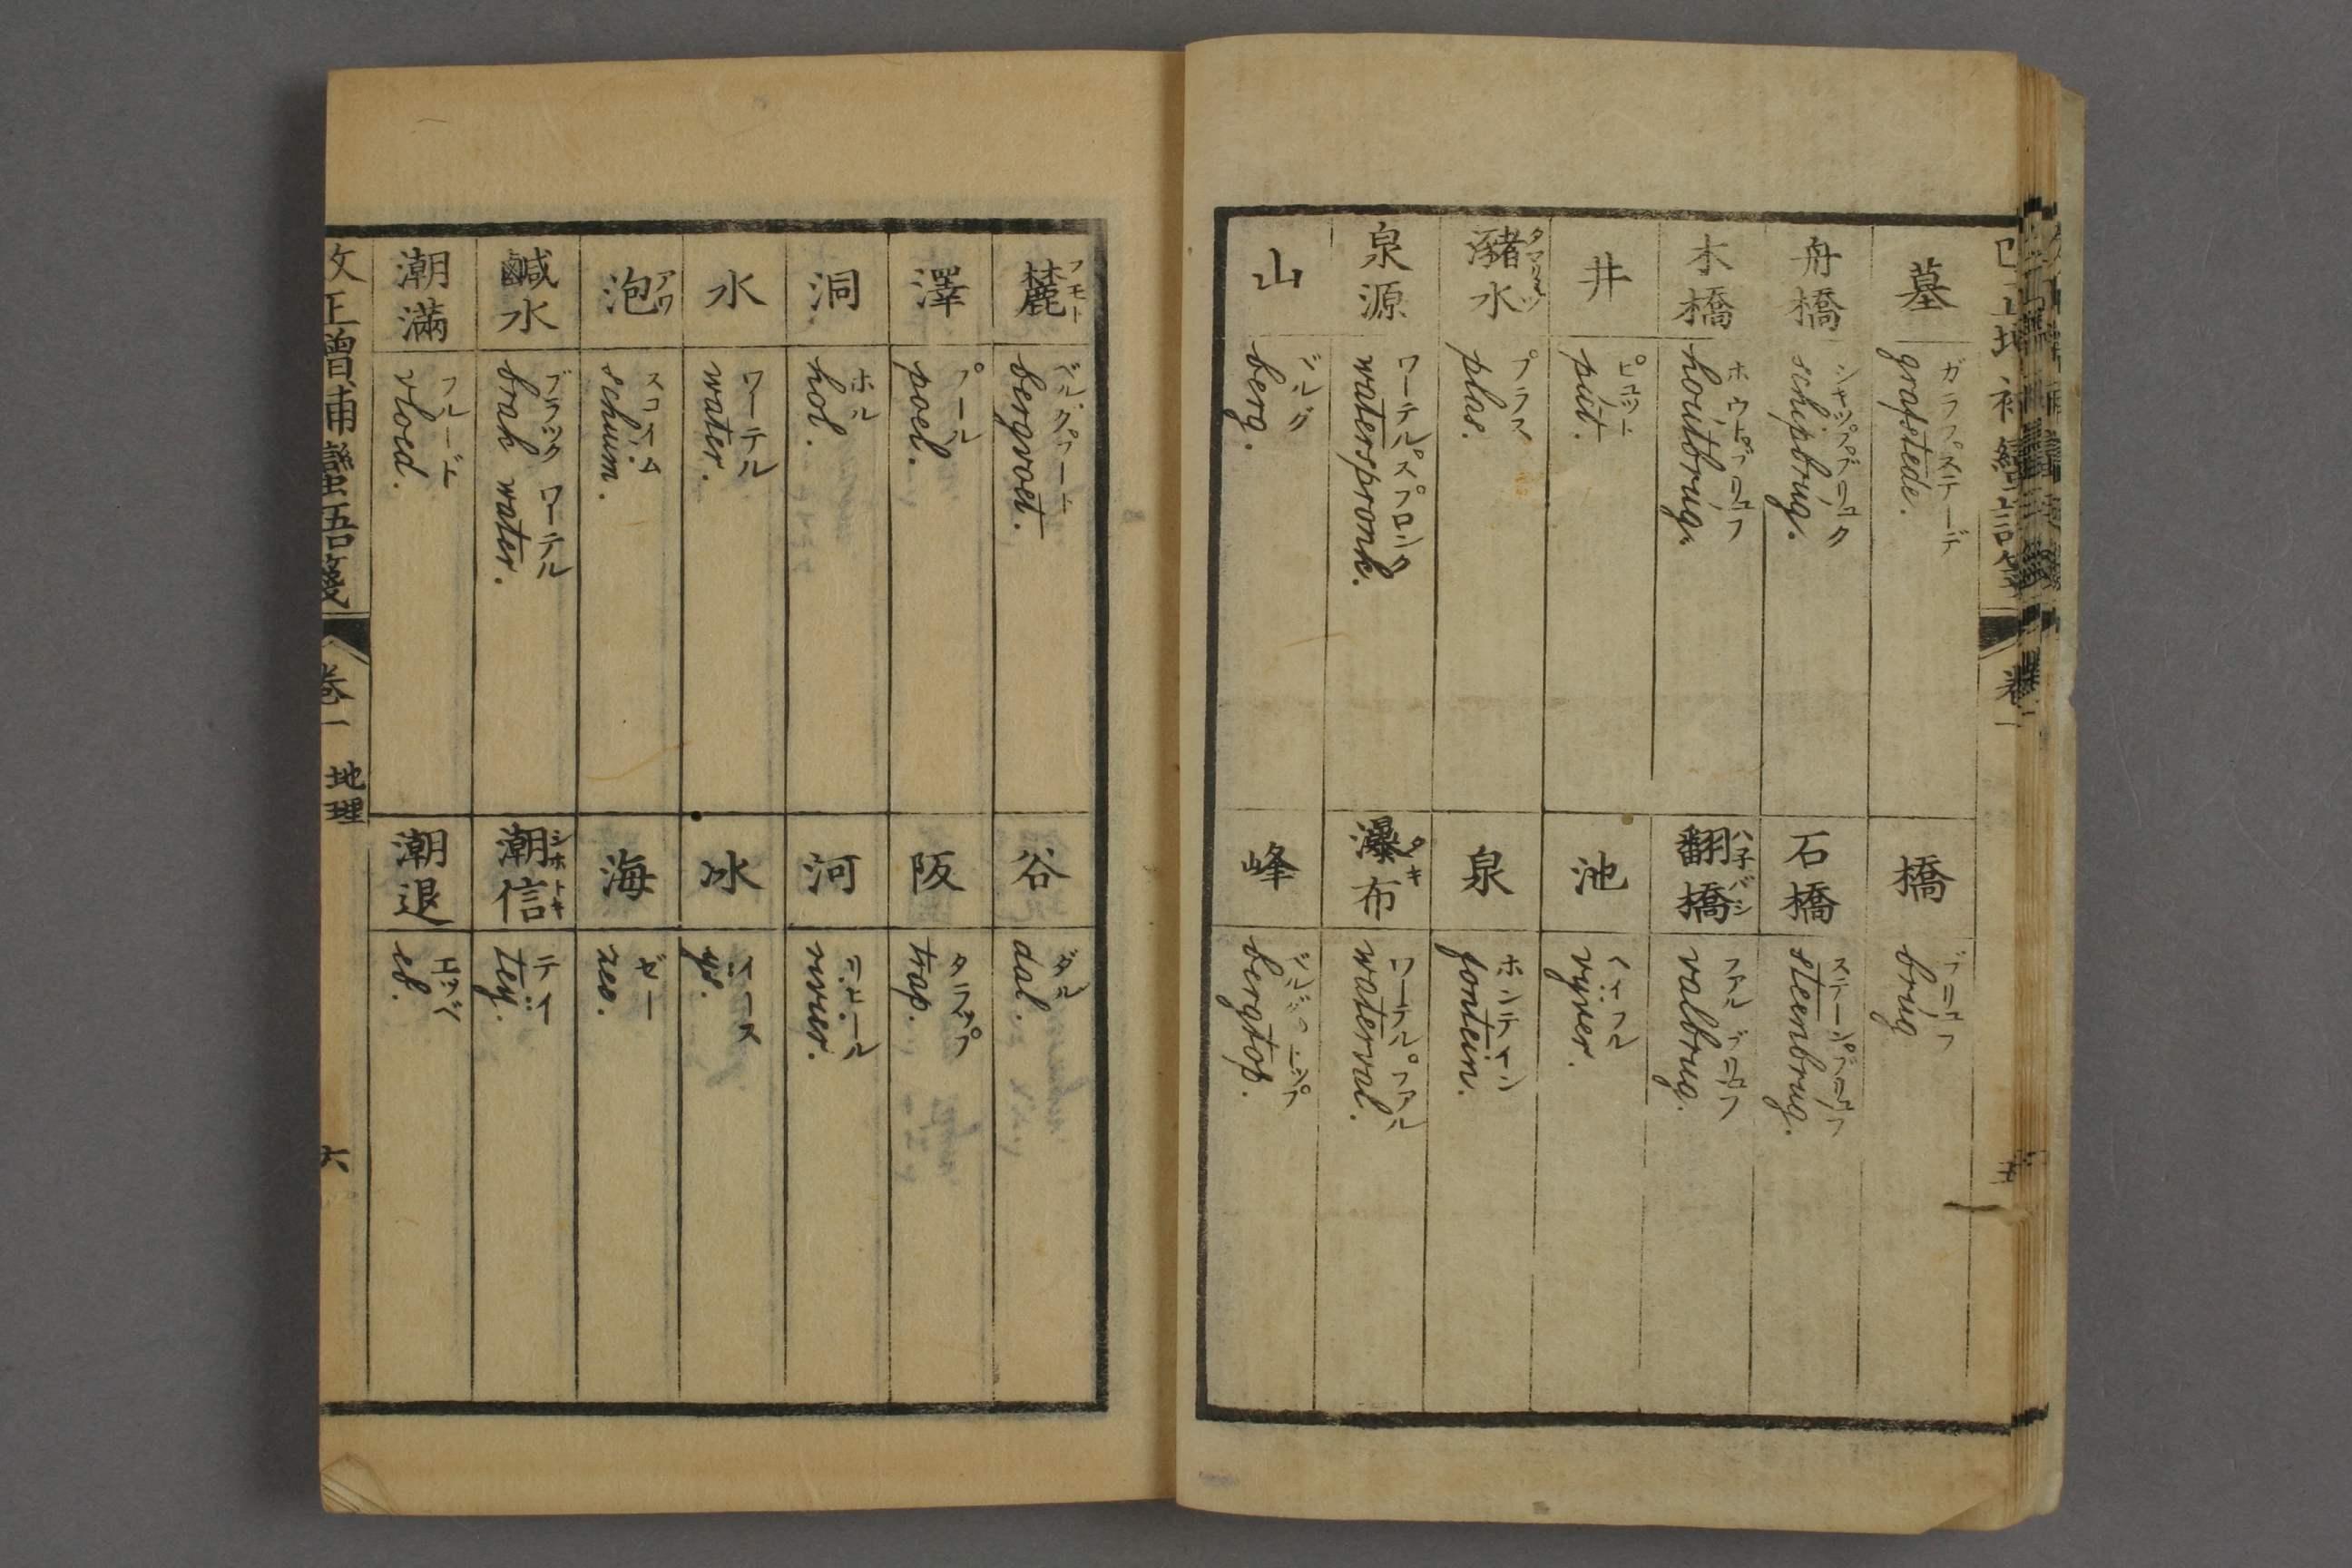 墓
ガラフステーデ
grafstede.
橋
ブリュフ
brúg
舟橋
シキップブリュク
schipbrúg.
石橋
ステーンブリュフ
steenbrug.
木橋
ホウトブリュフ
hoútbrúg.
翻橋
ハ子バシ
ファルブリュフ
valbrug.
井
ピュット
pút.
池
ヘイフル
vyver.
瀦水
タマリミツ
プラス
plas.
泉
ホンテイン
fontein.
泉源
ワーテルスプロンク
waterspronk.
瀑布
タキ
ワーテルファル
waterval.
山
ベルグ
berg.
峰
ベルグトップ
bergtop.
麓
フモト
ベルグフート
bergvoet.
谷
ダル
dal.
澤
プール
poel.
阪
タラップ
trap.
洞
ホル
hol.
河
リヒール
rivier.
水
ワーテル
water.
冰
イース
ys.
泡
アワ
スコイム
schuim.
海
ゼー
zee.
鹹水
ブラック ワーテル
brak water.
潮信
シホトキ
テイ
tey.
潮滿
フルード
vloed.
潮退
エッベ
eb.
改正增補蠻語箋
卷一 地理
六